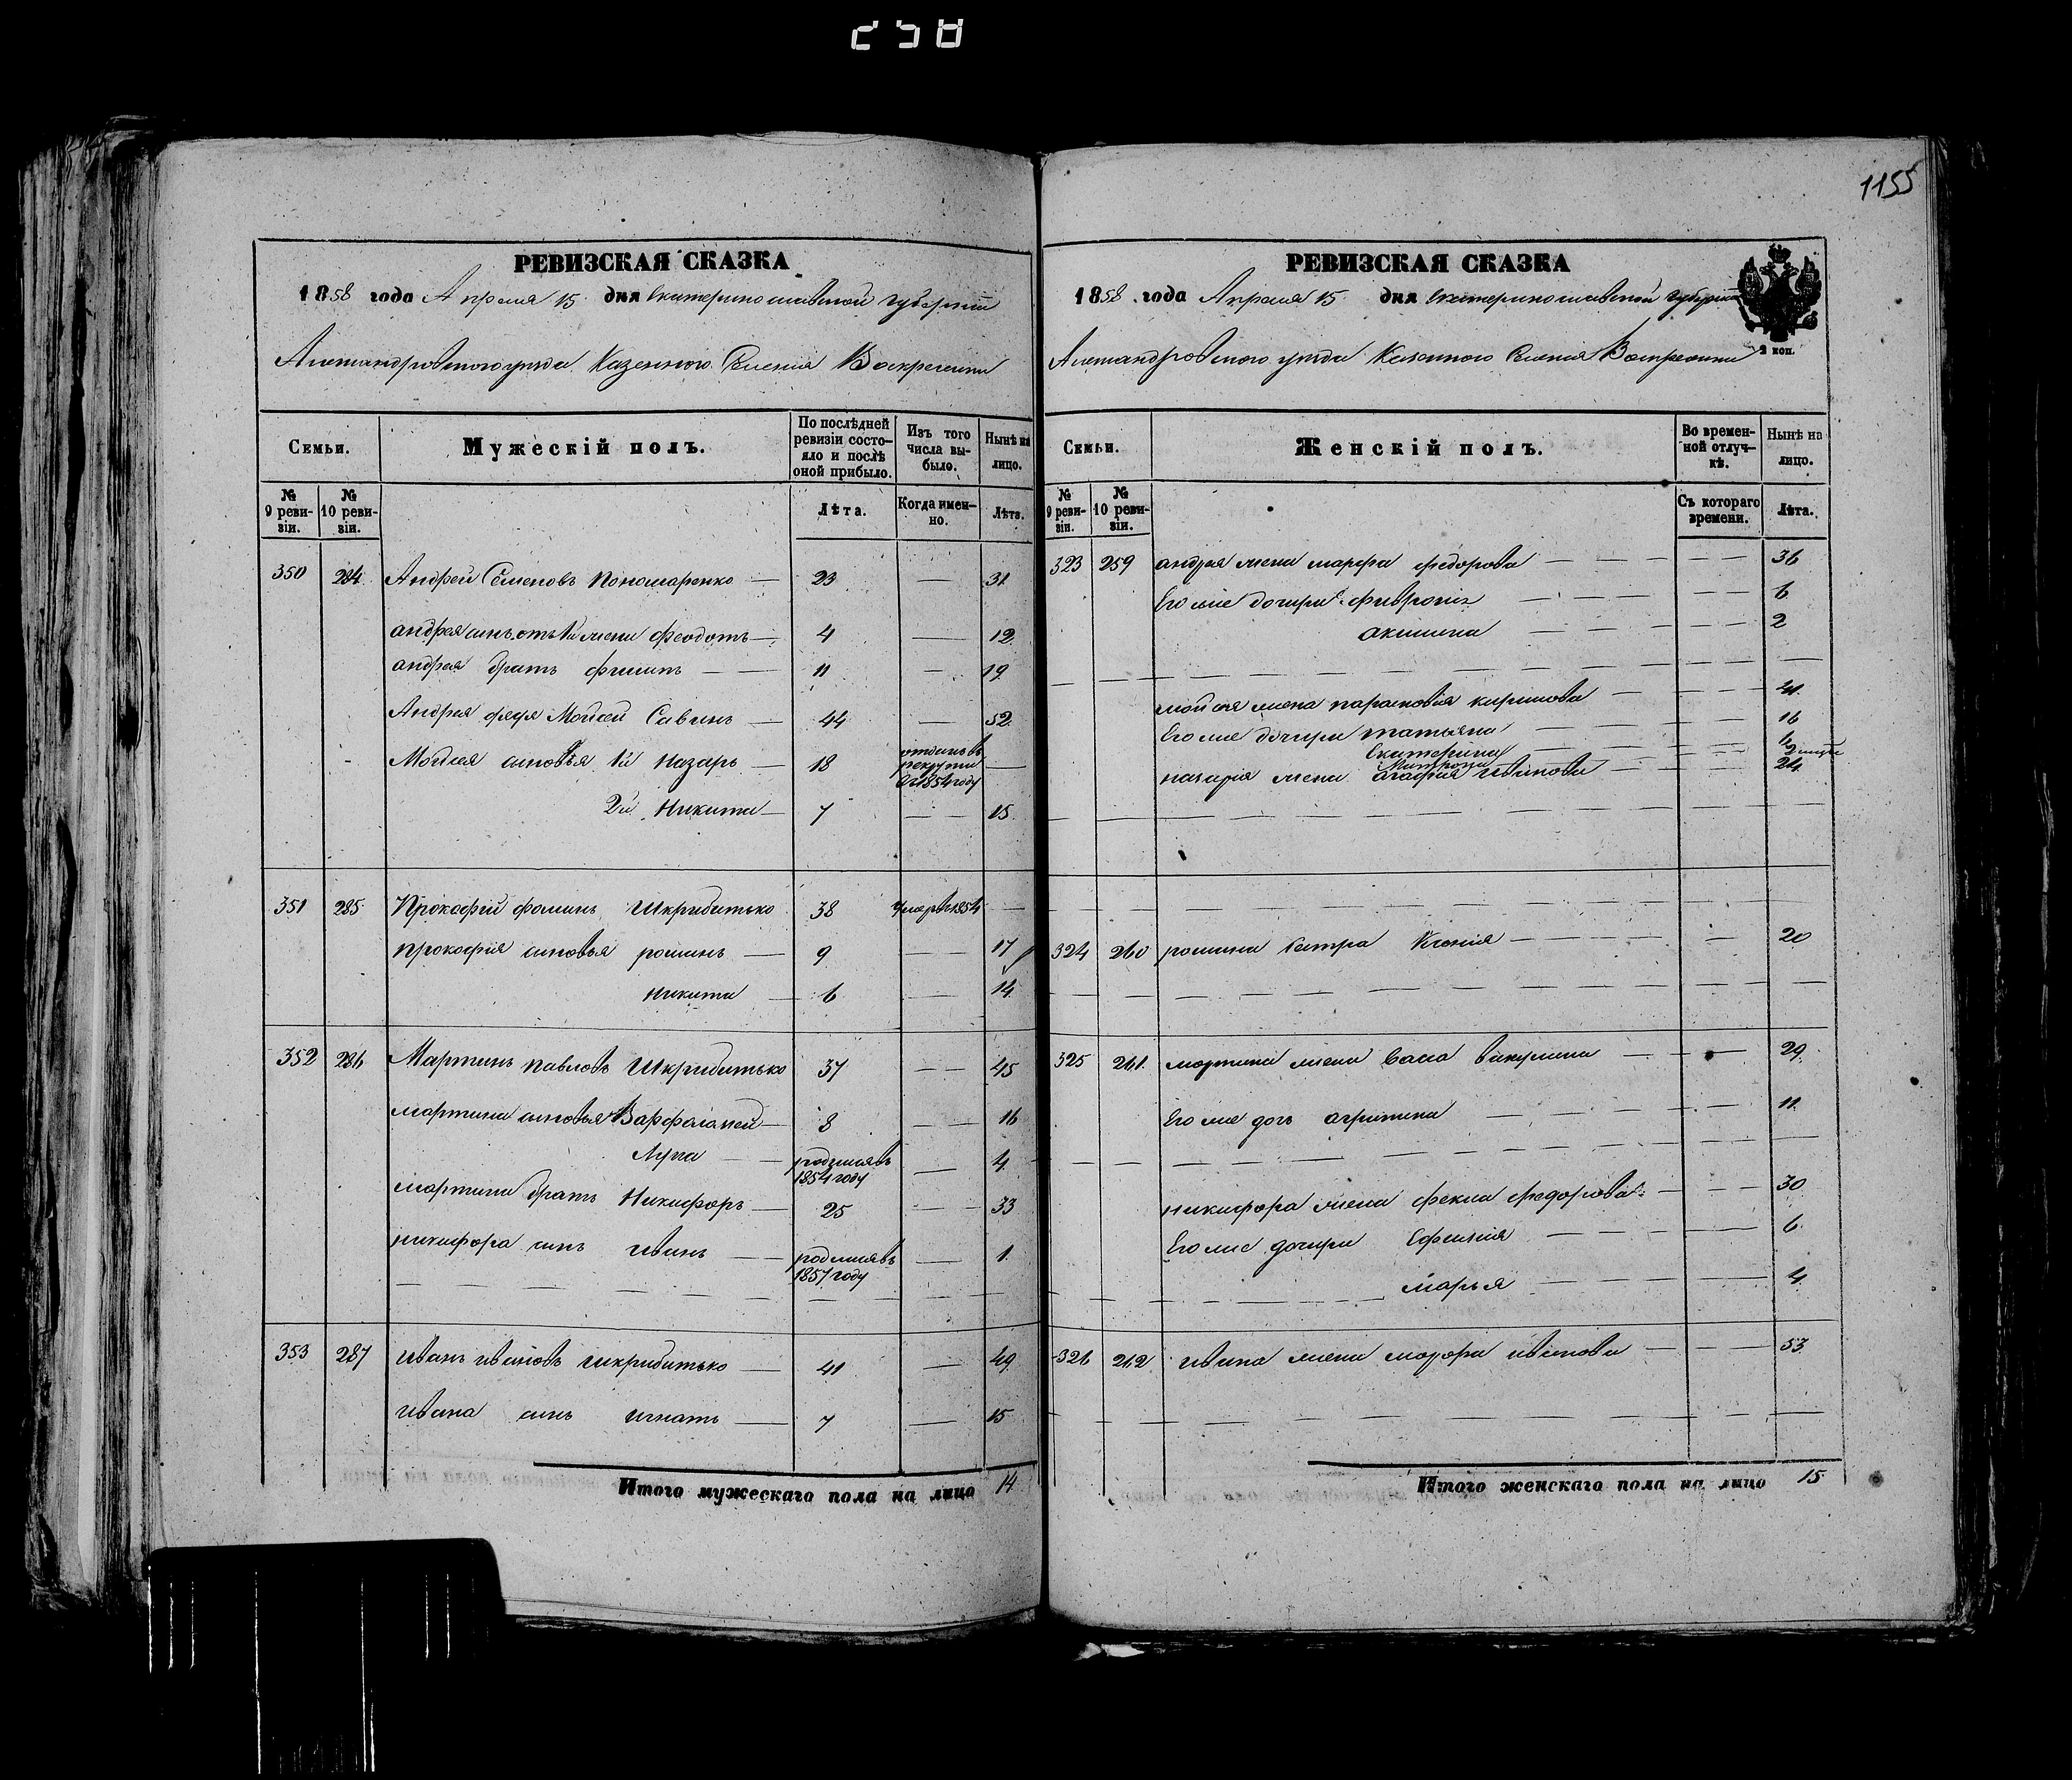 258
1155
РЕВИЗСКАЯ СКАЗКА
1858 года Апреля 15 дня Екатеринославской губернии
Александровского уезда Казенного Селения Воскресенки
Семьи.
Мужескій полъ.
По послѣдней ревизіи состояло и послѣ оной прибыло.
Изъ того числа выбыло.
Нынѣ на лицо.
№ 9 ревизіи.
№ 10 ревизіи.
Лѣта.
Когда именно.
Лѣта.
350 284 Андрей Семеновъ Пономаренко — 23 — 31
андрея синъ отъ 1й жени Феодотъ — 4 — 12
андрея братъ филипъ — 11 — 19
Андрея дядя Мойсей Савинъ — 44 — 52
Мойсея синовья 1й Назаръ — 18 отданъ въ рекрути въ 1854 году —
2й Никита — 7 — 15
351 285 Прокофій фоминъ Шкрибитько 38 Умеръ в 1854 —
прокофия синовья романъ — 9 — 17
никита — 6 — 14
352 286 Мартинъ павловъ Шкрибитько 37 — 45
мартина синовья Варфаламей — 8 — 16
Лука — родился въ 1854 году — 4
мартина братъ Никифоръ — 25 — 33
никифора синъ иванъ — родился въ 1857 году — 1
353 287 иванъ ивановъ шкрибитько — 41 — 49
ивана синъ игнатъ — 7 — 15
Итого мужескаго пола на лицо 14
РЕВИЗСКАЯ СКАЗКА
1858 года Апреля 15 дня Екатеринославской губернии
Александровского уезда Казенного Селения Воскресенки
2 коп.
Семьи.
Женскій полъ.
Во временной отлучкѣ.
Нынѣ на лицо.
№ 9 ревизіи.
№ 10 ревизіи.
Съ котораго времени.
Лѣта.
323 259 андрея жена марфа федорова — 36
Его же дочери феврония — 6
акилина — 2
мойсея жена парасковия кирилова — 41
Его же дочери татьяна — 16
Екатерина — 6
назария жена агафия иванова — 24
324 260 романа сестра Ксения — 20
325 261 мартина жена Васса вакулина — 29
Его же дочь агрипина — 11
никифора жена фекла федорова — 30
Его же дочери Ефимия — 6
марья — 4
326 262 ивана жена иванова — 53
Итого женскаго пола на лицо 15